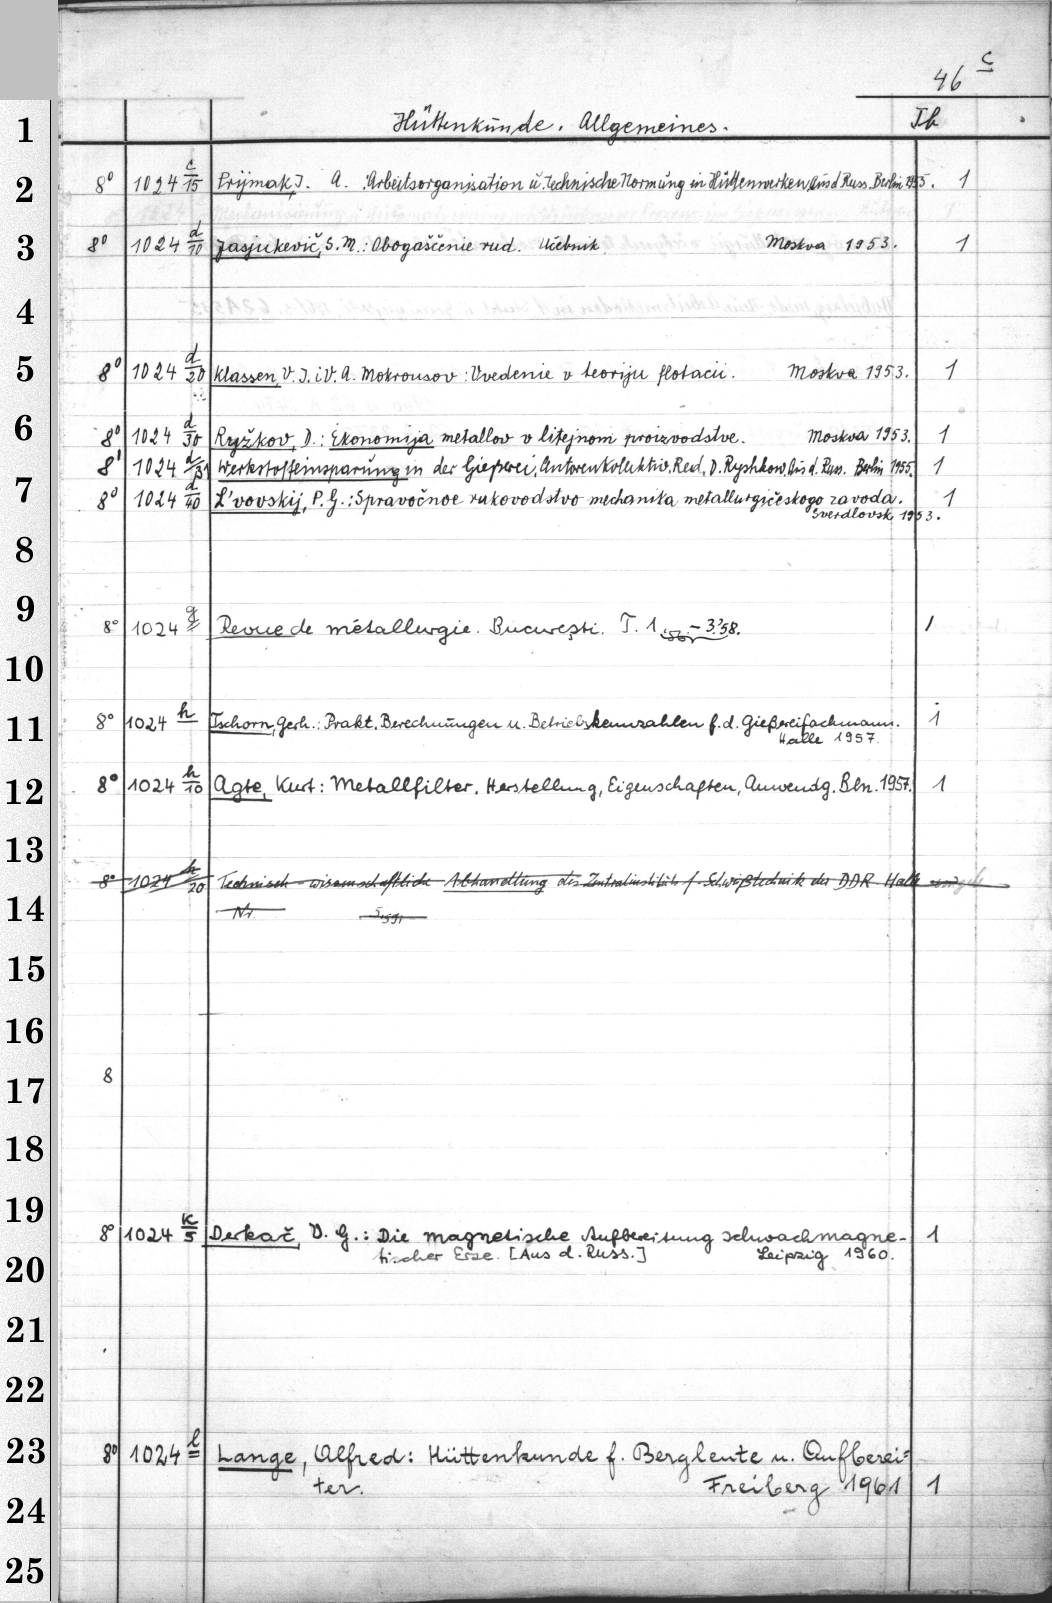 46 c
Hüttenkunde. Allgemeines. Tb
1
2 8° 1024 c/15 Prijmak, I. A. : Arbeitsorganisation u. technische Normung in Hüttenwerken, Aus d. Russ. Berlin 1955. 1
3 8° 1024 d/10 Jasjukevič, S. M.: Obogaščenie rud. Učebnik. Moskva 1953. 1
4
5 8° 1024 d/20 Klassen, V. I. i V. A. Mokrousov: Vvedenie v teoriju flotacii. Moskva 1953. 1
6 8° 1024 d/30 Ryžkov, D.: Ėkonomija metallov v litejnom proizvodstve. Moskva 1953. 1
8° 1024 d/31 Werkstoffeinsparung in der Gießerei, Autorenkollektiv, Red. D. Ryshkow, Aus d. Russ. Berlin 1955. 1
7 8° 1024 d/40 L'vovskij, P. G.: Spravočnoe rukovodstvo mechanika metallurgičeskogo zavoda. 1
Sverdlovsk 1953.
8
9 8° 1024 g Revue de métallurgie. Bucureşti. T. 1 '56. – 3.'58. 1
10
11 8° 1024 h Tschorn, Gerh.: Prakt. Berechnungen u. Betriebskennzahlen f. d. Gießereifachmann. 1
Halle 1957.
12 8° 1024 h/10 Agte, Kurt: Metallfilter. Herstellung, Eigenschaften, Anwendg. Bln. 1957. 1
13
8° 1024 h/20 Technisch-wissenschaftliche Abhandlung des Zentralinstituts f. Schweißtechnik der DDR Halle
14 Nr.
15
16
17 8
18
19 8° 1024 k/5 Derkač, V. G.: Die magnetische Aufbereitung schwachmagne- 1
tischer Erze. [Aus d. Russ.] Leipzig 1960.
20
21
22
23 8° 1024 l Lange, Alfred: Hüttenkunde f. Bergleute u. Aufberei=
ter. Freiberg 1961 1
24
25